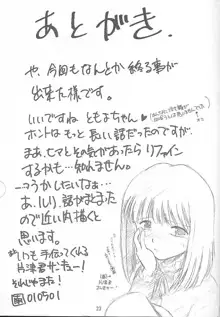 あとがき.
や、今回もなんとか終る事が
出来た様です。
いいですね ともよちゃん♥
ホントはもっと長い話だったのですが、
まァ、ヒマとその気があったらリファイン
するかも…知れません。
→こうかしたいなぁ…
あ、1しり、話がまとまった
ので近い内描くと
思います。
いつも手伝ってくれる
片津君サンキュー!
そんじゃまた!
010501
22